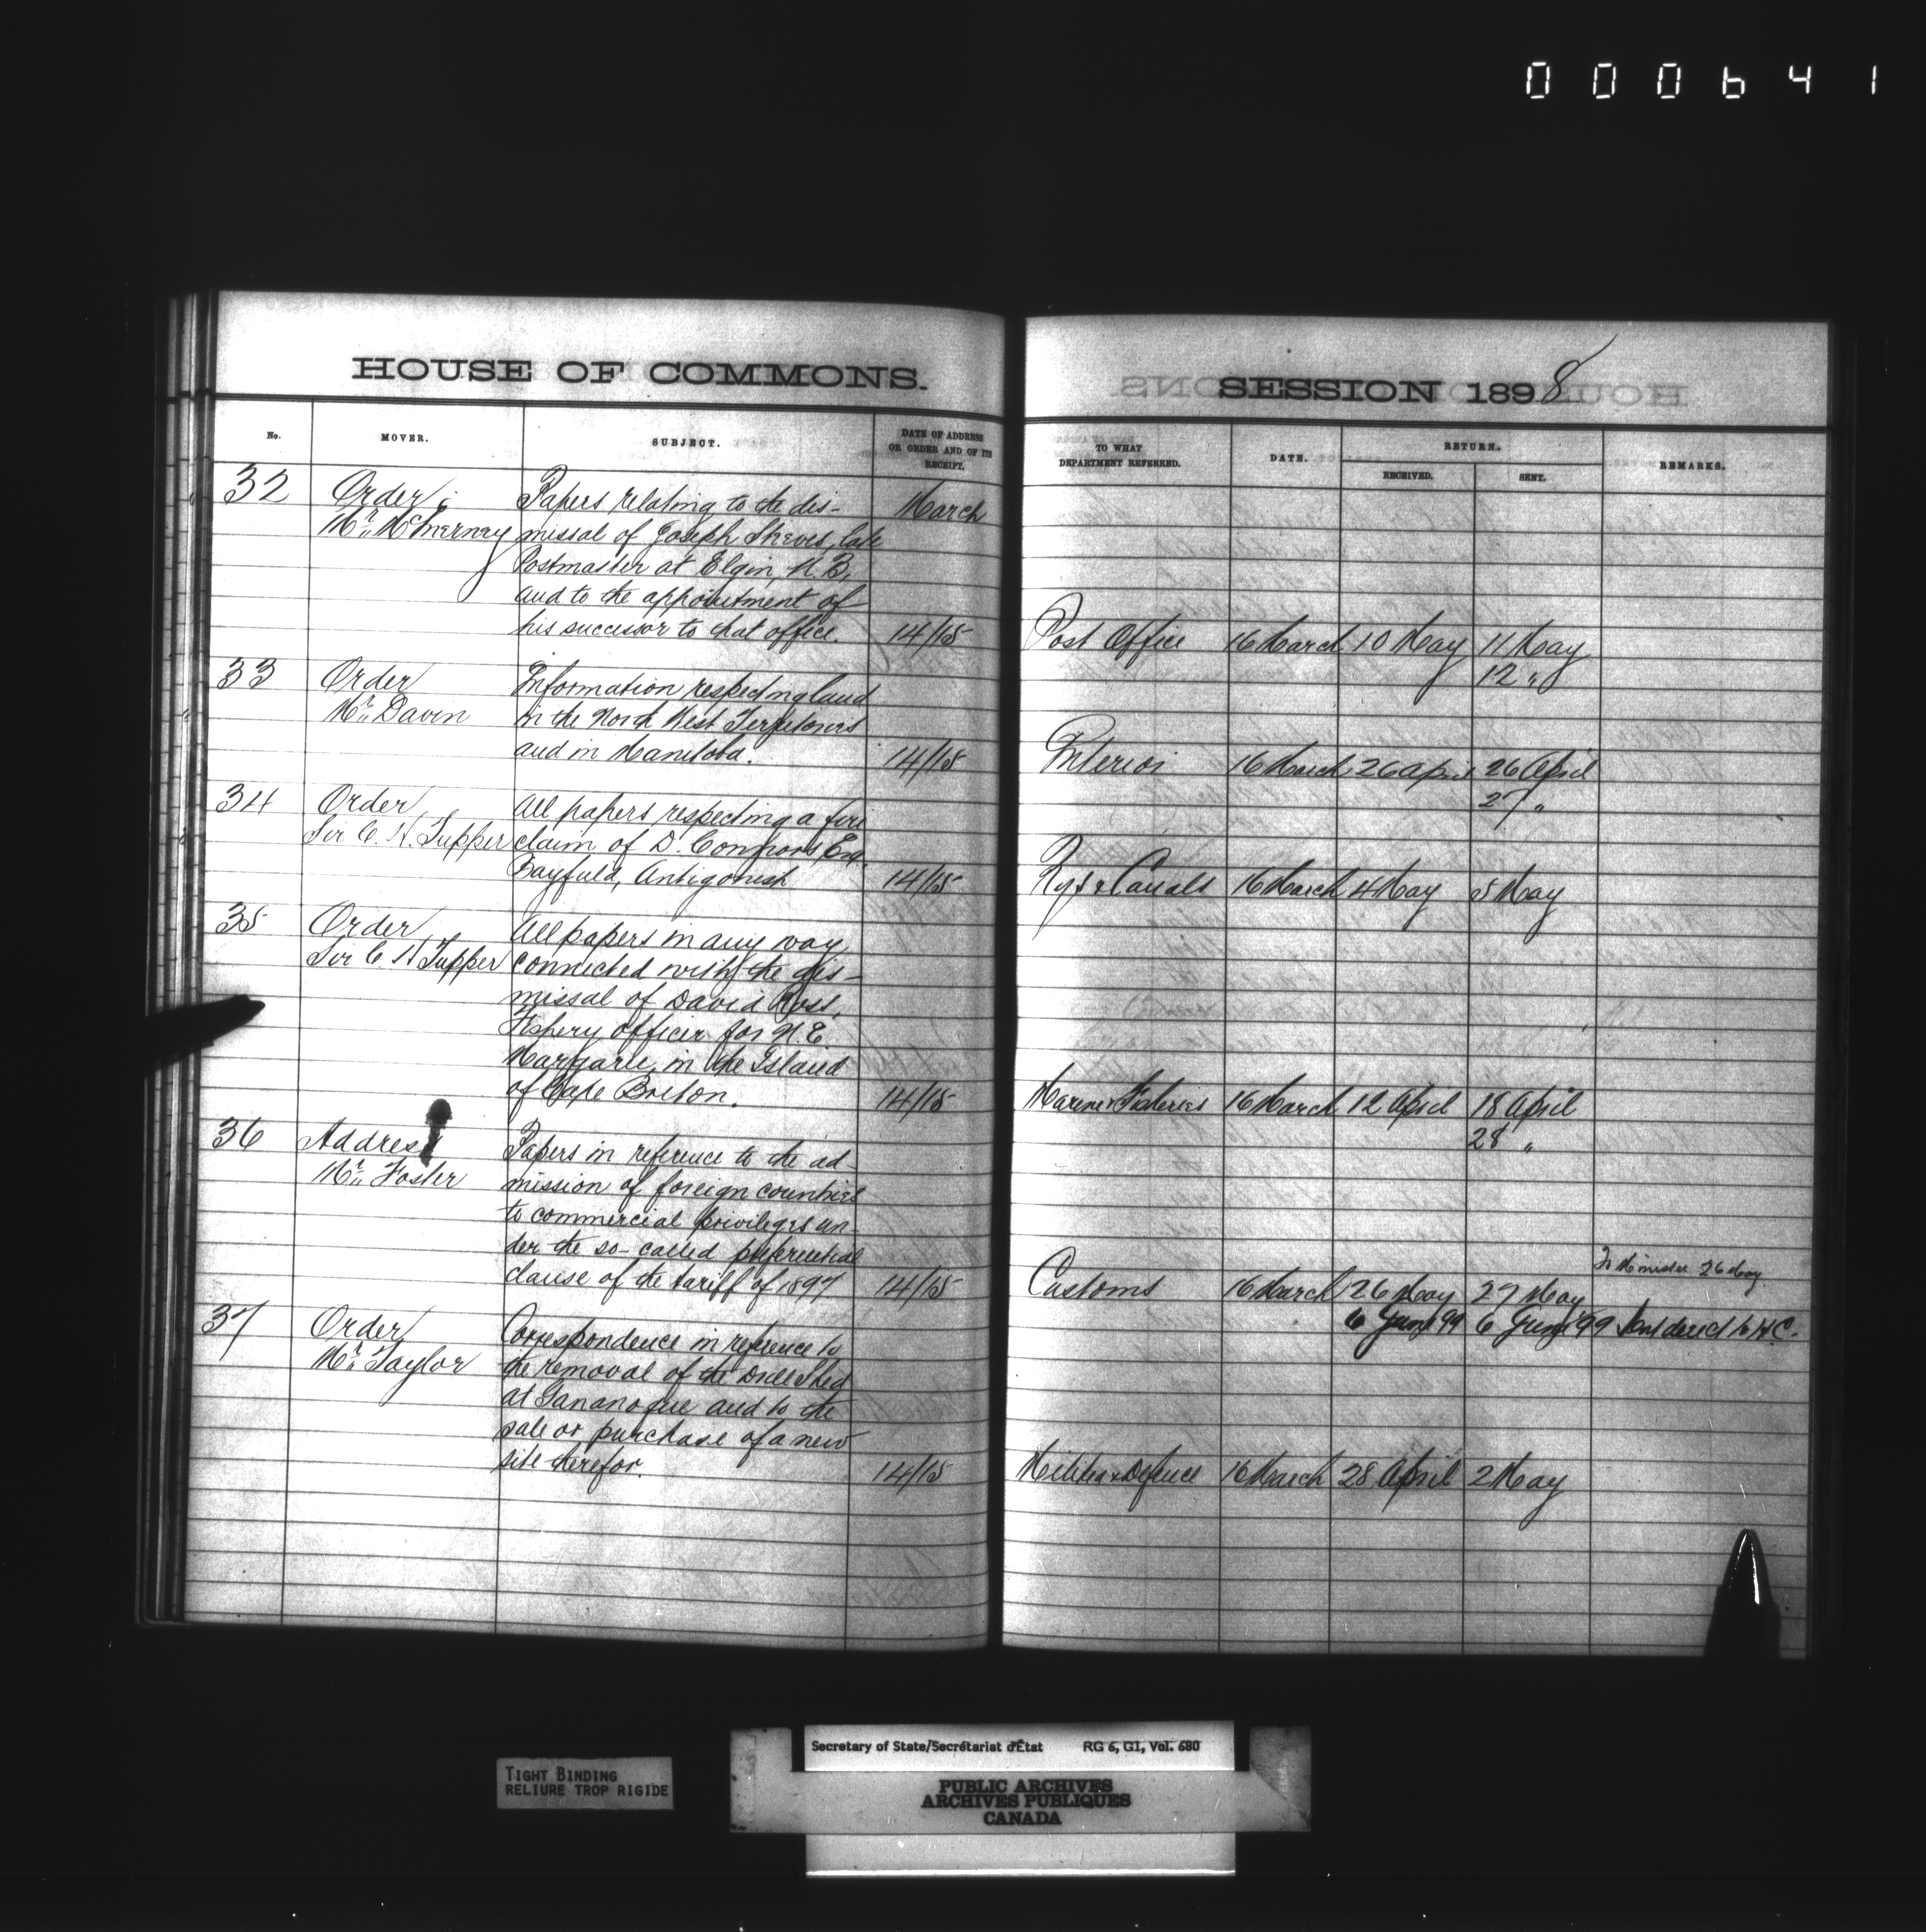 000641
HOUSE OF COMMONS.
No. MOVER. SUBJECT. DATE OF ADDRESS OR ORDER AND OF ITS RECEIPT.
32 Order Papers relating to the dis- March
Mr. McInerney missal of Joseph Steeves, late
Postmaster at Elgin, N.B,
and to the appointment of
his successor to that office. 14/15
33 Order Information respecting land
Mr. Davin in the North West Territories
and in Manitoba. 14/15
34 Order All papers respecting a fire
Sir C. H. Tupper claim of D. Connors Esq.
Bayfield, Antigonish 14/15
35 Order All papers in any way
Sir C. H Tupper connected with the dis-
missal of David Ross,
Fishery officer for N.E.
Margaree, in the Island
of Cape Breton. 14/15
36 Address Papers in reference to the ad-
Mr. Foster mission of foreign countries
to commercial privileges un-
der the so-called preferential
clause of the tariff of 1897 14/15
37 Order Correspondence in reference to
Mr. Taylor the removal of the Drill Shed
at Gananoque and to the
sale or purchase of a new
site therefor. 14/15
SESSION 1898
TO WHAT DEPARTMENT REFERRED. DATE. RETURN. RECEIVED. SENT. REMARKS.
Post Office 16 March 10 May 11 May
12 "
Interior 16 March 26 April 26 April
27 "
Rys & Canals 16 March 4 May 5 May
Marine & Fisheries 16 March 12 April 18 April
28 "
To Minister 26 May
Customs 16 March 26 May 27 May
6 June 99 6 June '99 to H C.
Militia & Defence 16 March 28 April 2 May
TIGHT BINDING
RELIURE TROP RIGIDE
Secretary of State/Secrétariat d'État RG 6, G1, Vol. 680
PUBLIC ARCHIVES
ARCHIVES PUBLIQUES
CANADA